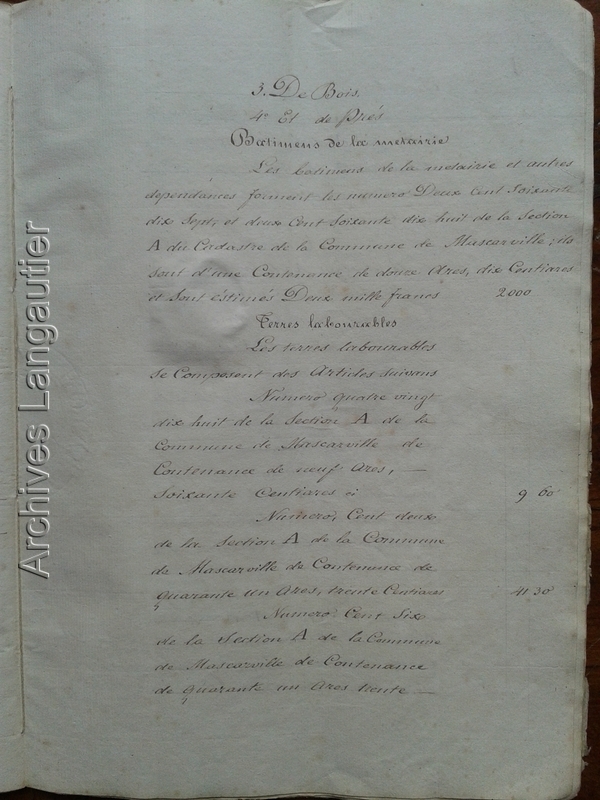 3. De Bois.
4° Et de Prés
Batimens de la metairie
Les batimens de la metairie et autres
dependances forment les numero Deux Cent Soixante
dix Sept, et deux Cent Soixante dix huit de la Section
A du Cadastre de la Commune de Mascarville; ils
sont d'une Contenance de douze Ares, dix Centiares
et Sont éstimés Deux mille francs 2000
Terres labourables
Les terres labourables
se Composent des Articles suivans
Numero quatre vingt
dix huit de la Section A de la
Commune de Mascarville de
Contenance de neuf Ares, —
Soixante Centiares ci 9 60
Numero, Cent deux
de la Section A de la Commune
de Mascarville de Contenance de
quarante un Ares, trente Centiares 41 30
Numero Cent Six
de la Section A de la Commune
de Mascarville de Contenance
de quarante un Ares trente —
Archives Langautier